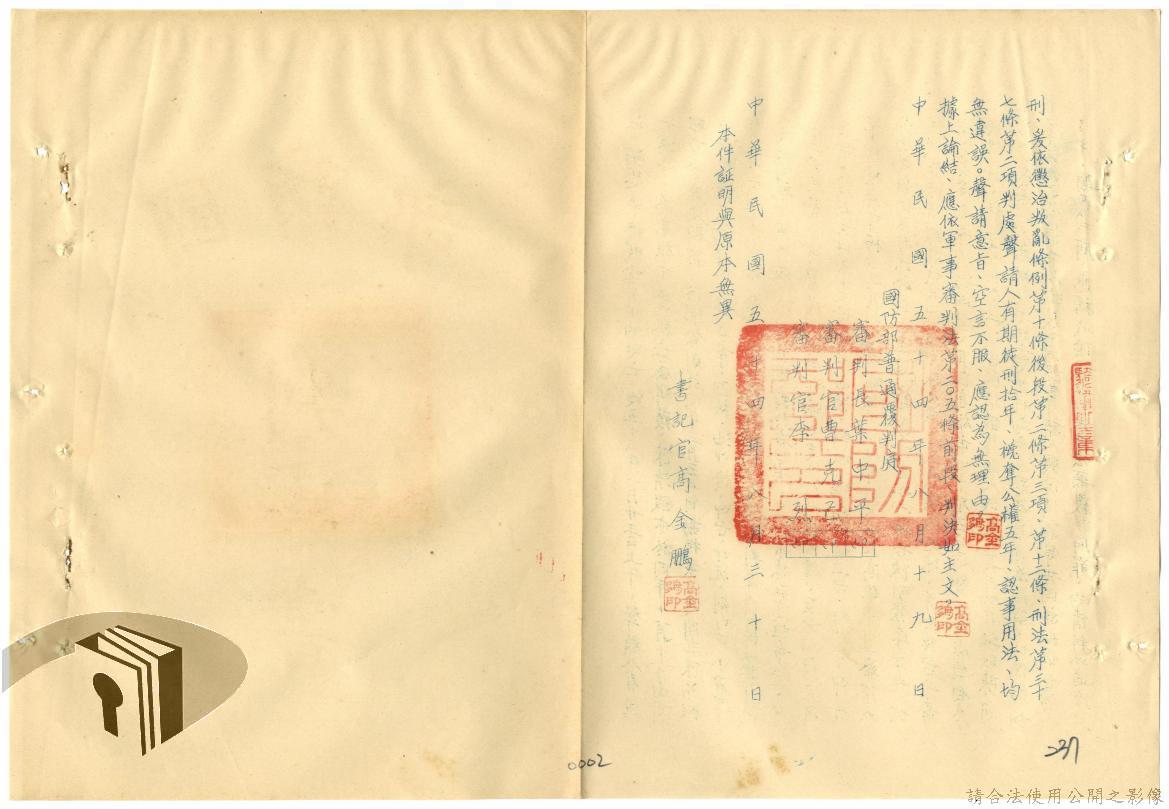 刑、爰依懲治叛亂條例第十條後段第二條第三項、第十二條、刑法第三十
七條第二項判處聲請人有期徒刑拾年、褫奪公權五年、認事用法、均
無違誤。聲請意旨、空言不服、應認為無理由。
據上論結、應依軍事審判法第二０五條前段、判決如主文。
中華民國五十四年八月十九日
國防部普通覆判庭
審判長葉中平
審判官曹克己
審判官李烈
中華民國五十四年八月三十日
本件証明與原本無異
書記官高金鵬
高金鵬印
高金鵬印
高金鵬印
0002
237
請合法使用公開之影像